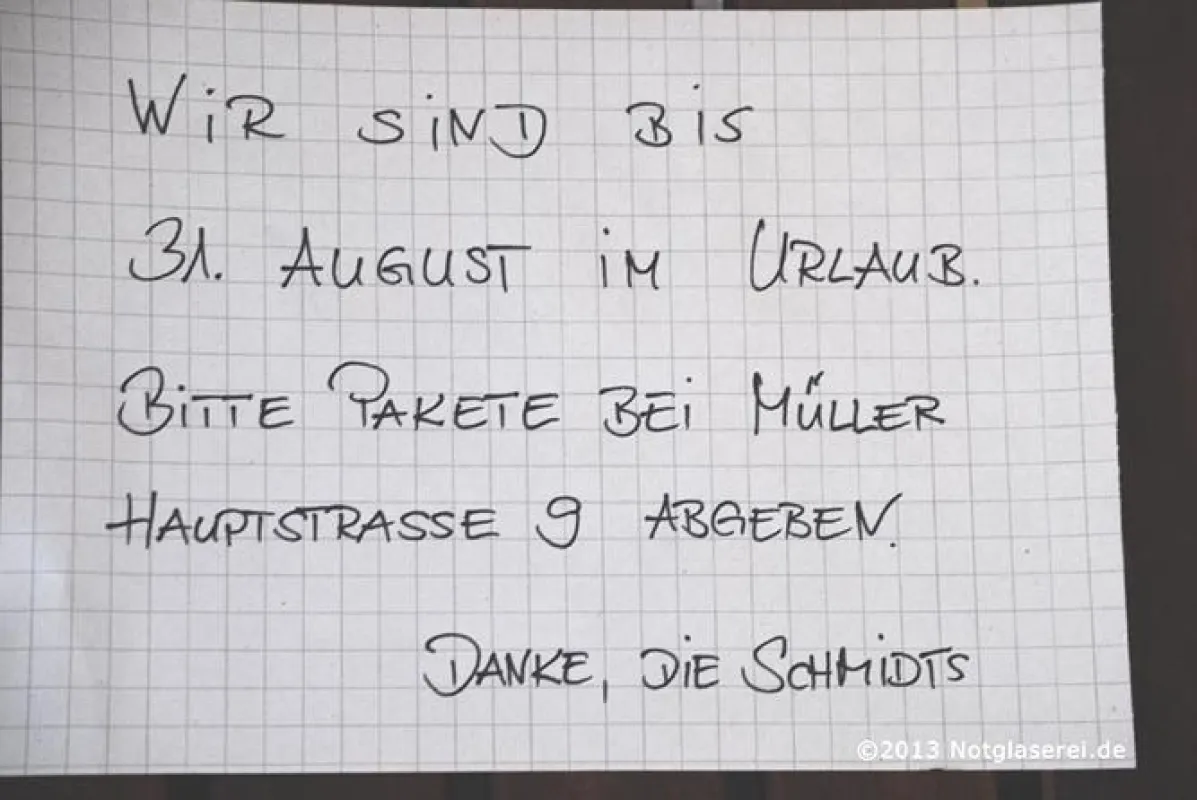 WiR SiND BiS
31. AUGUST iM URLAUB.
BiTTE PAKETE BEi MÜLLER
HAUPTSTRASSE 9 ABGEBEN.
DANKE, DiE SCHMiDTS
©2013 Notglaserei.de